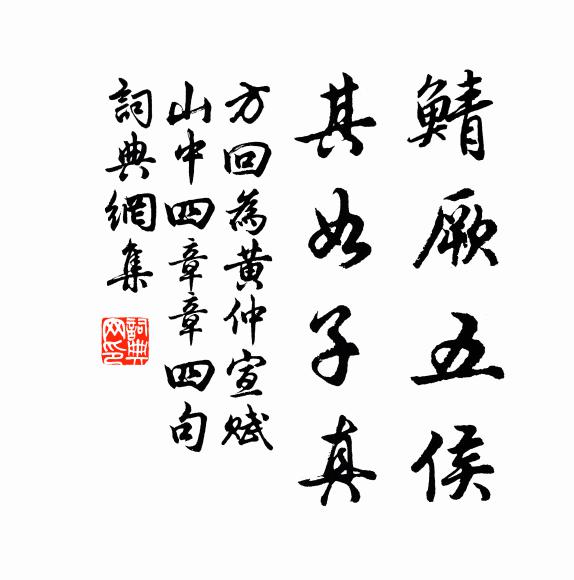 鯖厥五侯
其如子真
方回為黃仲宣賦
山中四章章四句
詞典網集
詞典網印